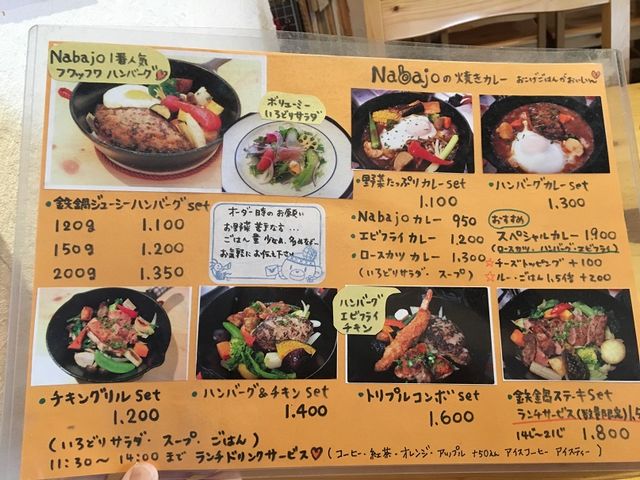 Nabajo 1番人気
フワッフワ ハンバーグ
ボリューミー
いろどりサラダ
・鉄鍋ジューシーハンバーグset
120g 1.100
150g 1.200
200g 1.350
オーダー時のお願い
お野菜 苦手な方…
ごはん量 少なめ、多めなど…
お気軽にお伝え下さい
Nabajoの焼きカレー おこげごはんがおいしい
・野菜たっぷりカレーset
1.100
・ハンバーグカレーset
1.300
・Nabajoカレー 950
・エビフライカレー 1.200
・ロースカツカレー 1.300
(いろどりサラダ・スープ)
おすすめ
スペシャルカレー 1900
(ロースカツ、ハンバーグ・エビフライ)
☆チーズトッピング +100
☆ルー・ごはん1.5倍 +200
・チキングリルset
1.200
・ハンバーグ&チキンset
1.400
ハンバーグ
エビフライ
チキン
・トリプルコンボset
1.600
・鉄鍋ステーキset
ランチサービス(数量限定)
14じ〜21じ 1.800
(いろどりサラダ・スープ・ごはん)
11:30〜14:00まで ランチドリンクサービス♡(コーヒー・紅茶・オレンジ・アップル +50えん アイスコーヒー アイスティー)